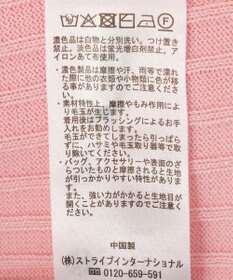 濃色は白物と分別洗い。つけ置き
禁止。淡色品は蛍光増白剤禁止。ア
イロンあて布使用。
・濃色製品は摩擦や汗、雨等で濡れ
た際に他の衣類や小物類に色が移
る事がありますのでご注意くださ
い。
・素材特性上、摩擦やもみ作用によ
り毛玉が生じます。
着用後はブラッシングによるお手
入れをお勧めします。
毛玉ができてしまったら引っぱら
ずに、ハサミや毛玉取り器等で取
り除いてください。
・バッグ、アクセサリーや表面のざ
らついたものと摩擦されると生地
が毛羽立ち易くなります。
また、強い力がかかると生地目が
開くことがありますのでご注意く
ださい。
中国製
(株)ストライプインターナショナル
0120-659-591